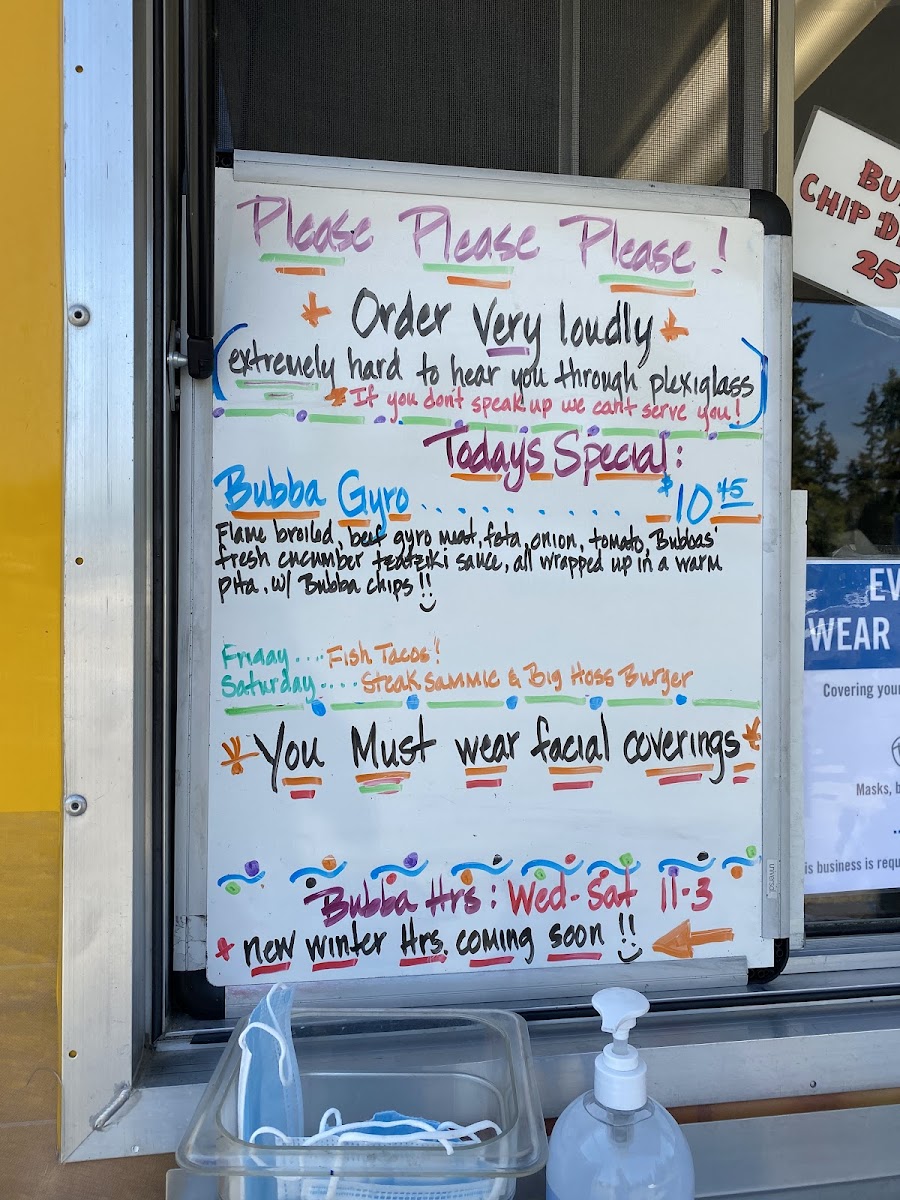 Please Please Please!
Order Very loudly
(extremely hard to hear you through plexiglass)
If you don't speak up we cant serve you!
Todays Special:
Bubba Gyro.......... $10 45
Flame broiled, beef gyro meat, feta, onion, tomato, Bubbas'
fresh cucumber tzatziki sauce, all wrapped up in a warm
pita. w/ Bubba chips!!
Friday....Fish Tacos!
Saturday....Steak Sammie & Big Hoss Burger
You Must wear facial coverings
Bubba Hrs: Wed-Sat 11-3
new winter Hrs. coming soon!!
universal
BU
CHIP D
25
EV
WEAR
Covering your
Masks, b
is business is requ